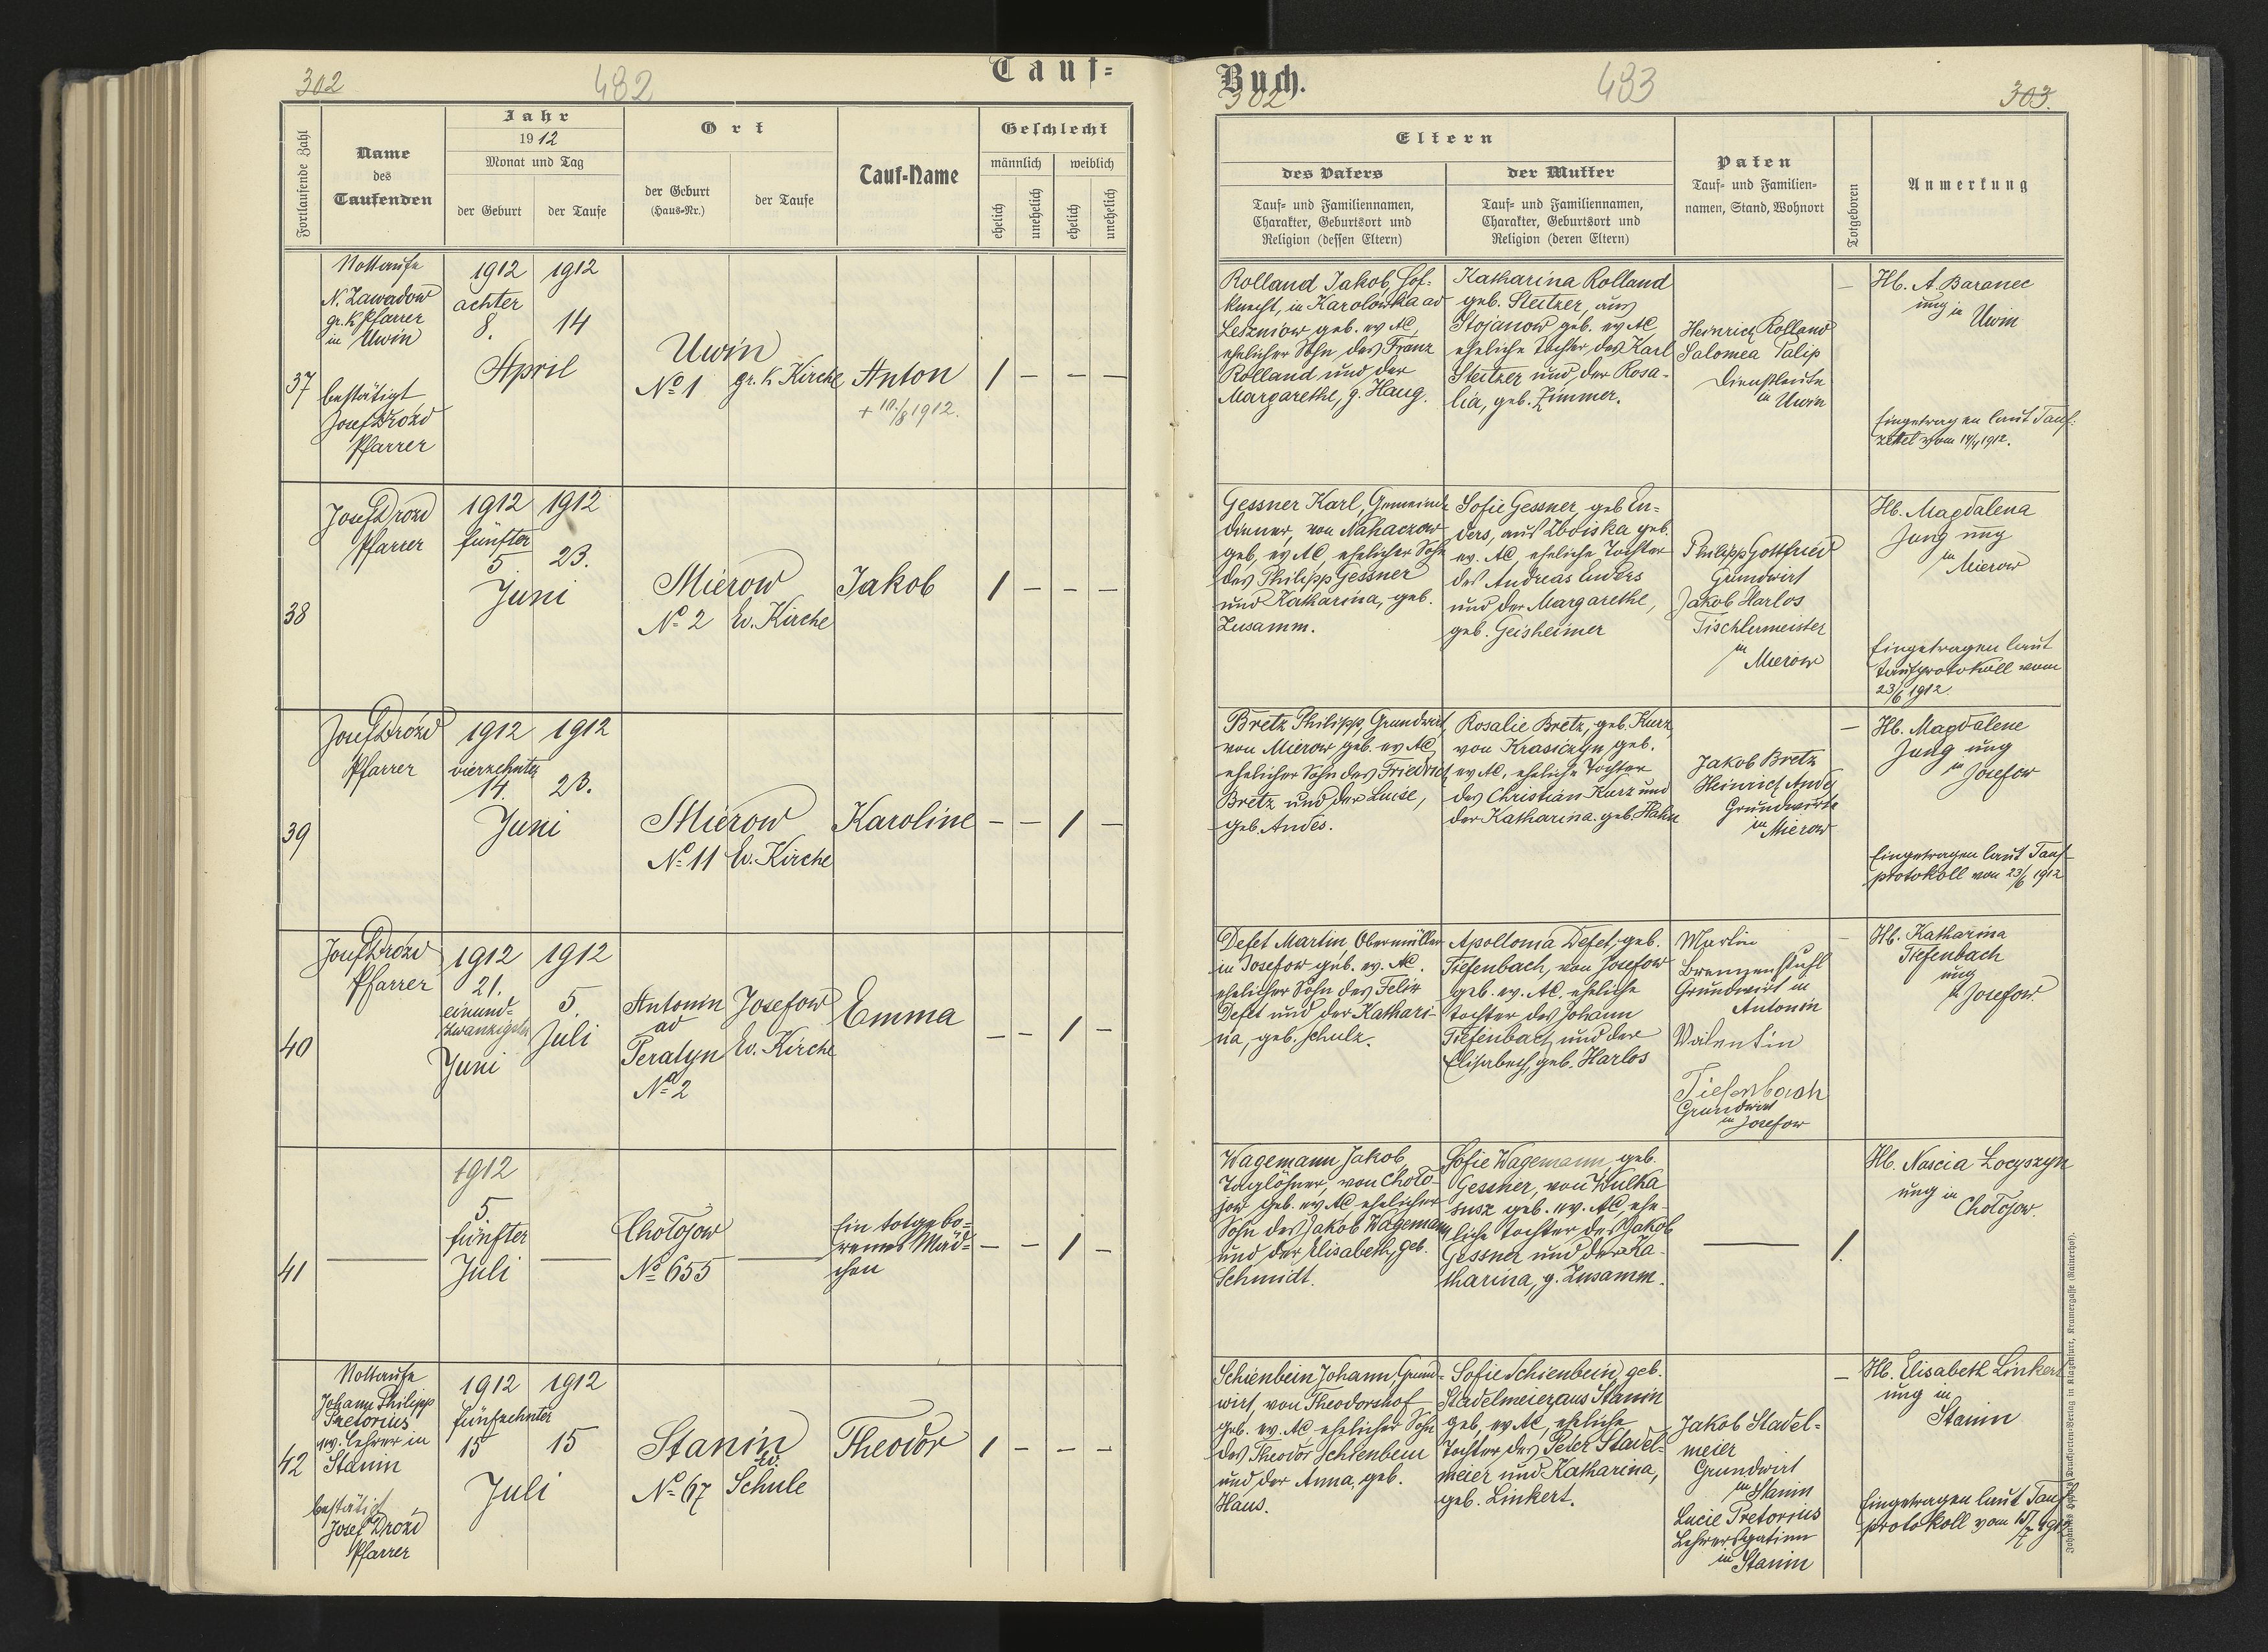 302
482
Tauf=
Fortlaufende Zahl
Name
des
Taufenden
Jahr
1912
Monat und Tag
der Geburt
der Taufe
Ort
der Geburt
(Haus-Nr.)
der Taufe
Tauf-Name
Geschlecht
männlich
weiblich
ehelich
unehelich
ehelich
unehelich
37
Nottaufe
N. Zawadow
gr. k. Pfarrer
in Uwin
bestätigt
Josef Drozd
Pfarrer
1912 1912
achter
8. 14
April
Uwin
No 1 gr. k. Kirche
Anton
+ 10./8 1912.
1 – – –
38
Josef Drozd
Pfarrer
1912 1912
fünfter
5. 23.
Juni
Mierow
No 2 Ev. Kirche
Jakob
1 – – –
39
Josef Drozd
Pfarrer
1912 1912
vierzehnter
14. 23.
Juni
Mierow
No 11 Ev. Kirche
Karoline
– – 1 –
40
Josef Drozd
Pfarrer
1912 1912
21. 5.
einund=
zwanzigster Juli
Juni
Antonin Josefow
ad
Peratyn Ev. Kirche
No 2
Emma
– – 1 –
41
1912
5
fünfter
Juli
Cholojow
No 655
Ein totgebo=
renes Mäd=
chen
– – 1 –
42
Nottaufe
Johann Philipp
Pretorius
ev. Lehrer in
Stanin
bestätigt
Josef Drozd
Pfarrer
1912 1912
fünfzehnter
15 15
Juli
Stanin
Ev.
No 67 Schule
Theodor
1 – – –
Buch.
302
483
303.
Eltern
des Vaters
Tauf= und Familiennamen,
Charakter, Geburtsort und
Religion (dessen Eltern)
der Mutter
Tauf= und Familiennamen,
Charakter, Geburtsort und
Religion (deren Eltern)
Paten
Tauf= und Familien=
namen, Stand, Wohnort
Totgeboren
Anmerkung
Rolland Jakob, Hof=
knecht, in Karolowka ad
Lesniow geb. ev. AC,
ehelicher Sohn des Franz
Rolland und der
Margarethe, g. Haug.
Katharina Rolland
geb. Steitzer, aus
Stojanow geb. ev. AC,
eheliche Tochter des Karl
Steitzer und der Rosa=
lia, geb. Zimmer.
Heinrich Rolland
Salomea Palip
Dienstleute
in Uwin
–
Hb. A. Baranec
ung in
Uwin
Eingetragen laut Tauf=
zettel vom 14/4 1912.
Gessner Karl, Gemeinde
diener, von Nahaczow
geb, ev AC, ehelicher Sohn
des Philipp Gessner
und Katharina, geb.
Zusamm.
Sofie Gessner, geb En=
ders, aus Zboiska geb.
ev. AC eheliche Tochter
des Andreas Enders
und der Margarethe,
geb. Geisheimer
Philipp Gottfried
Grundwirt
Jakob Harlos
Tischlermeister
in
Mierow
Hb. Magdalena
Jung ung
in
Mierow
Eingetragen laut
Taufprotokoll vom
23/6 1912.
Bretz Philipp, Grundwirt,
von Mierow geb. ev AC,
ehelicher Sohn des Friedrich
Bretz und der Luise,
geb. Andes.
Rosalie Bretz, geb. Kurz
von Krasiczyn, geb.
ev AC, eheliche Tochter
des Christian Kurz und
der Katharina geb. Hahn
Jakob Bretz
Heinrich Andes
Grundwirte
in Mierow
–
Hb. Magdalene
Jung ung
in
Josefow
Eingetragen laut Tauf=
protokoll von 23/6 1912
Defet Martin, Obermüller
in Josefow geb. ev. AC.
ehelicher Sohn des Felix
Defet und der Kathari=
na, geb. Schulz.
Apollonia Defet, geb.
Tiefenbach, von Josefow
geb. ev. AC. eheliche
Tochter des Johann
Tiefenbach und der
Elisabeth, geb. Harlos
Martin
Brennenstuhl
Grundwirt in
Antonin
Valentin
Tiefenbach
Grundwirt
in Josefow
–
Hb. Katharina
Tiefenbach
ung
in Josefow.
Wagemann Jakob,
Taglöhner, von Cholo=
jow geb. ev AC ehelicher
Sohn des Jakob Wagemann
und der Elisabeth, geb.
Schmidt.
Sofie Wagemann, geb.
Gessner, von Wulka
susz geb. ev. AC, ehe=
liche Tochter des Jakob
Gessner und der Ka=
tharina, g. Zusamm.
1.
Hb. Nascia Locyszyn
ung in
Cholojow.
Schienbein Johann, Grund=
wirt, von Theodorshof
geb. ev. AC, ehelicher Sohn
des Theodor Schienbein
und der Anna, geb.
Haus.
Sofie Schienbein, geb.
Stadelmeier aus Stanin
geb, ev AC, eheliche
Tochter des Peter Stadel=
meier und Katharina,
geb. Linkert.
Jakob Stadel=
meier
Grundwirt
in Stanin
Lucie Pretorius
Lehrersgattin
in Stanin
–
Hb. Elisabeth Linkert
ung in
Stanin
Eingetragen laut Tauf
protokoll vom 15/7 1912